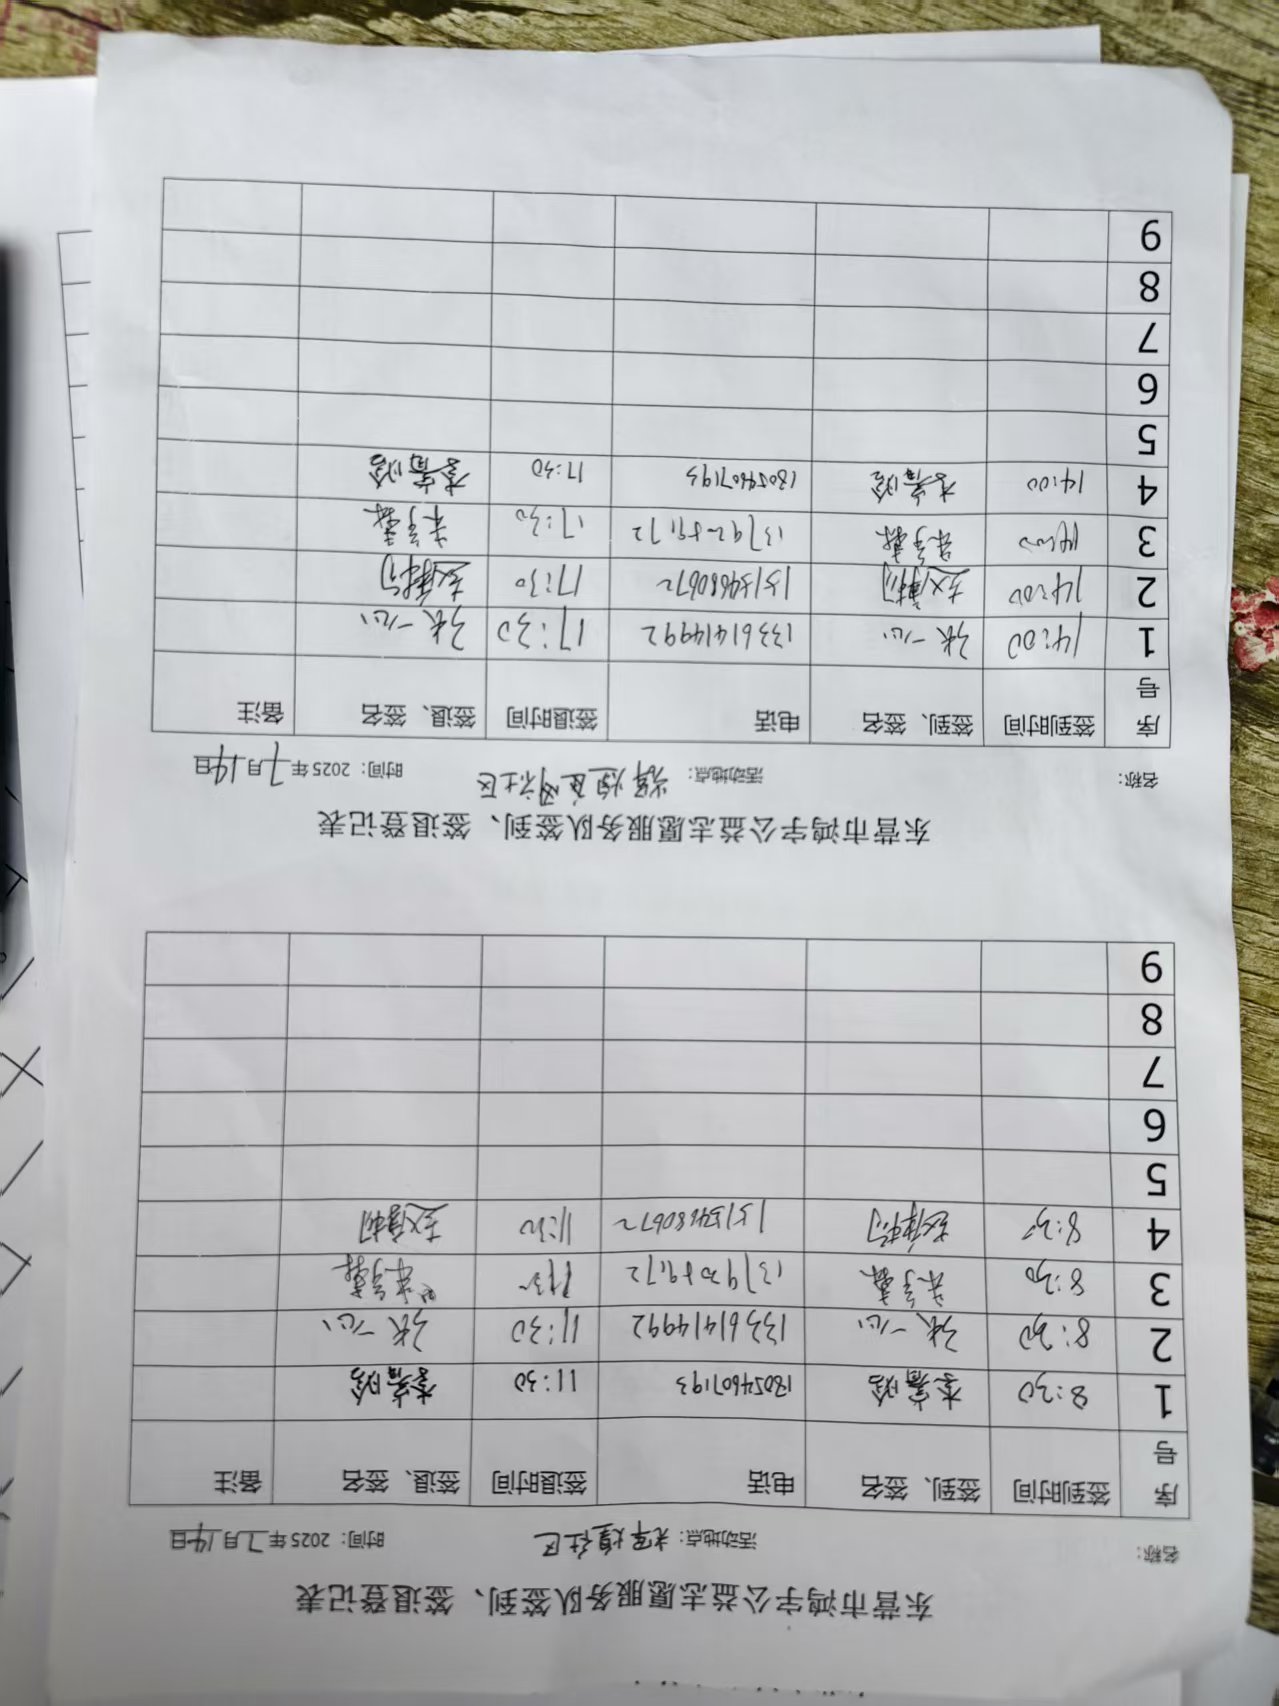 东营市鸿宇公益志愿服务队签到、签退登记表
名称： 活动地点：辉煌社区 时间：2025年7月14日
序号 签到时间 签到、签名 电话 签退时间 签退、签名 备注
1 8:30 18054607193 11:30
2 8:30 张一心 13361414992 11:30 张一心
3 8:30
4 8:30 15154680672 11:30
5
6
7
8
9
东营市鸿宇公益志愿服务队签到、签退登记表
名称： 活动地点：辉煌 社区 时间：2025年7月14日
序号 签到时间 签到、签名 电话 签退时间 签退、签名 备注
1 14:00 张一心 13361414992 17:30 张一心
2 14:00 15154680672 17:30
3 14:00 17:30
4 14:00 18054607193 17:30
5
6
7
8
9